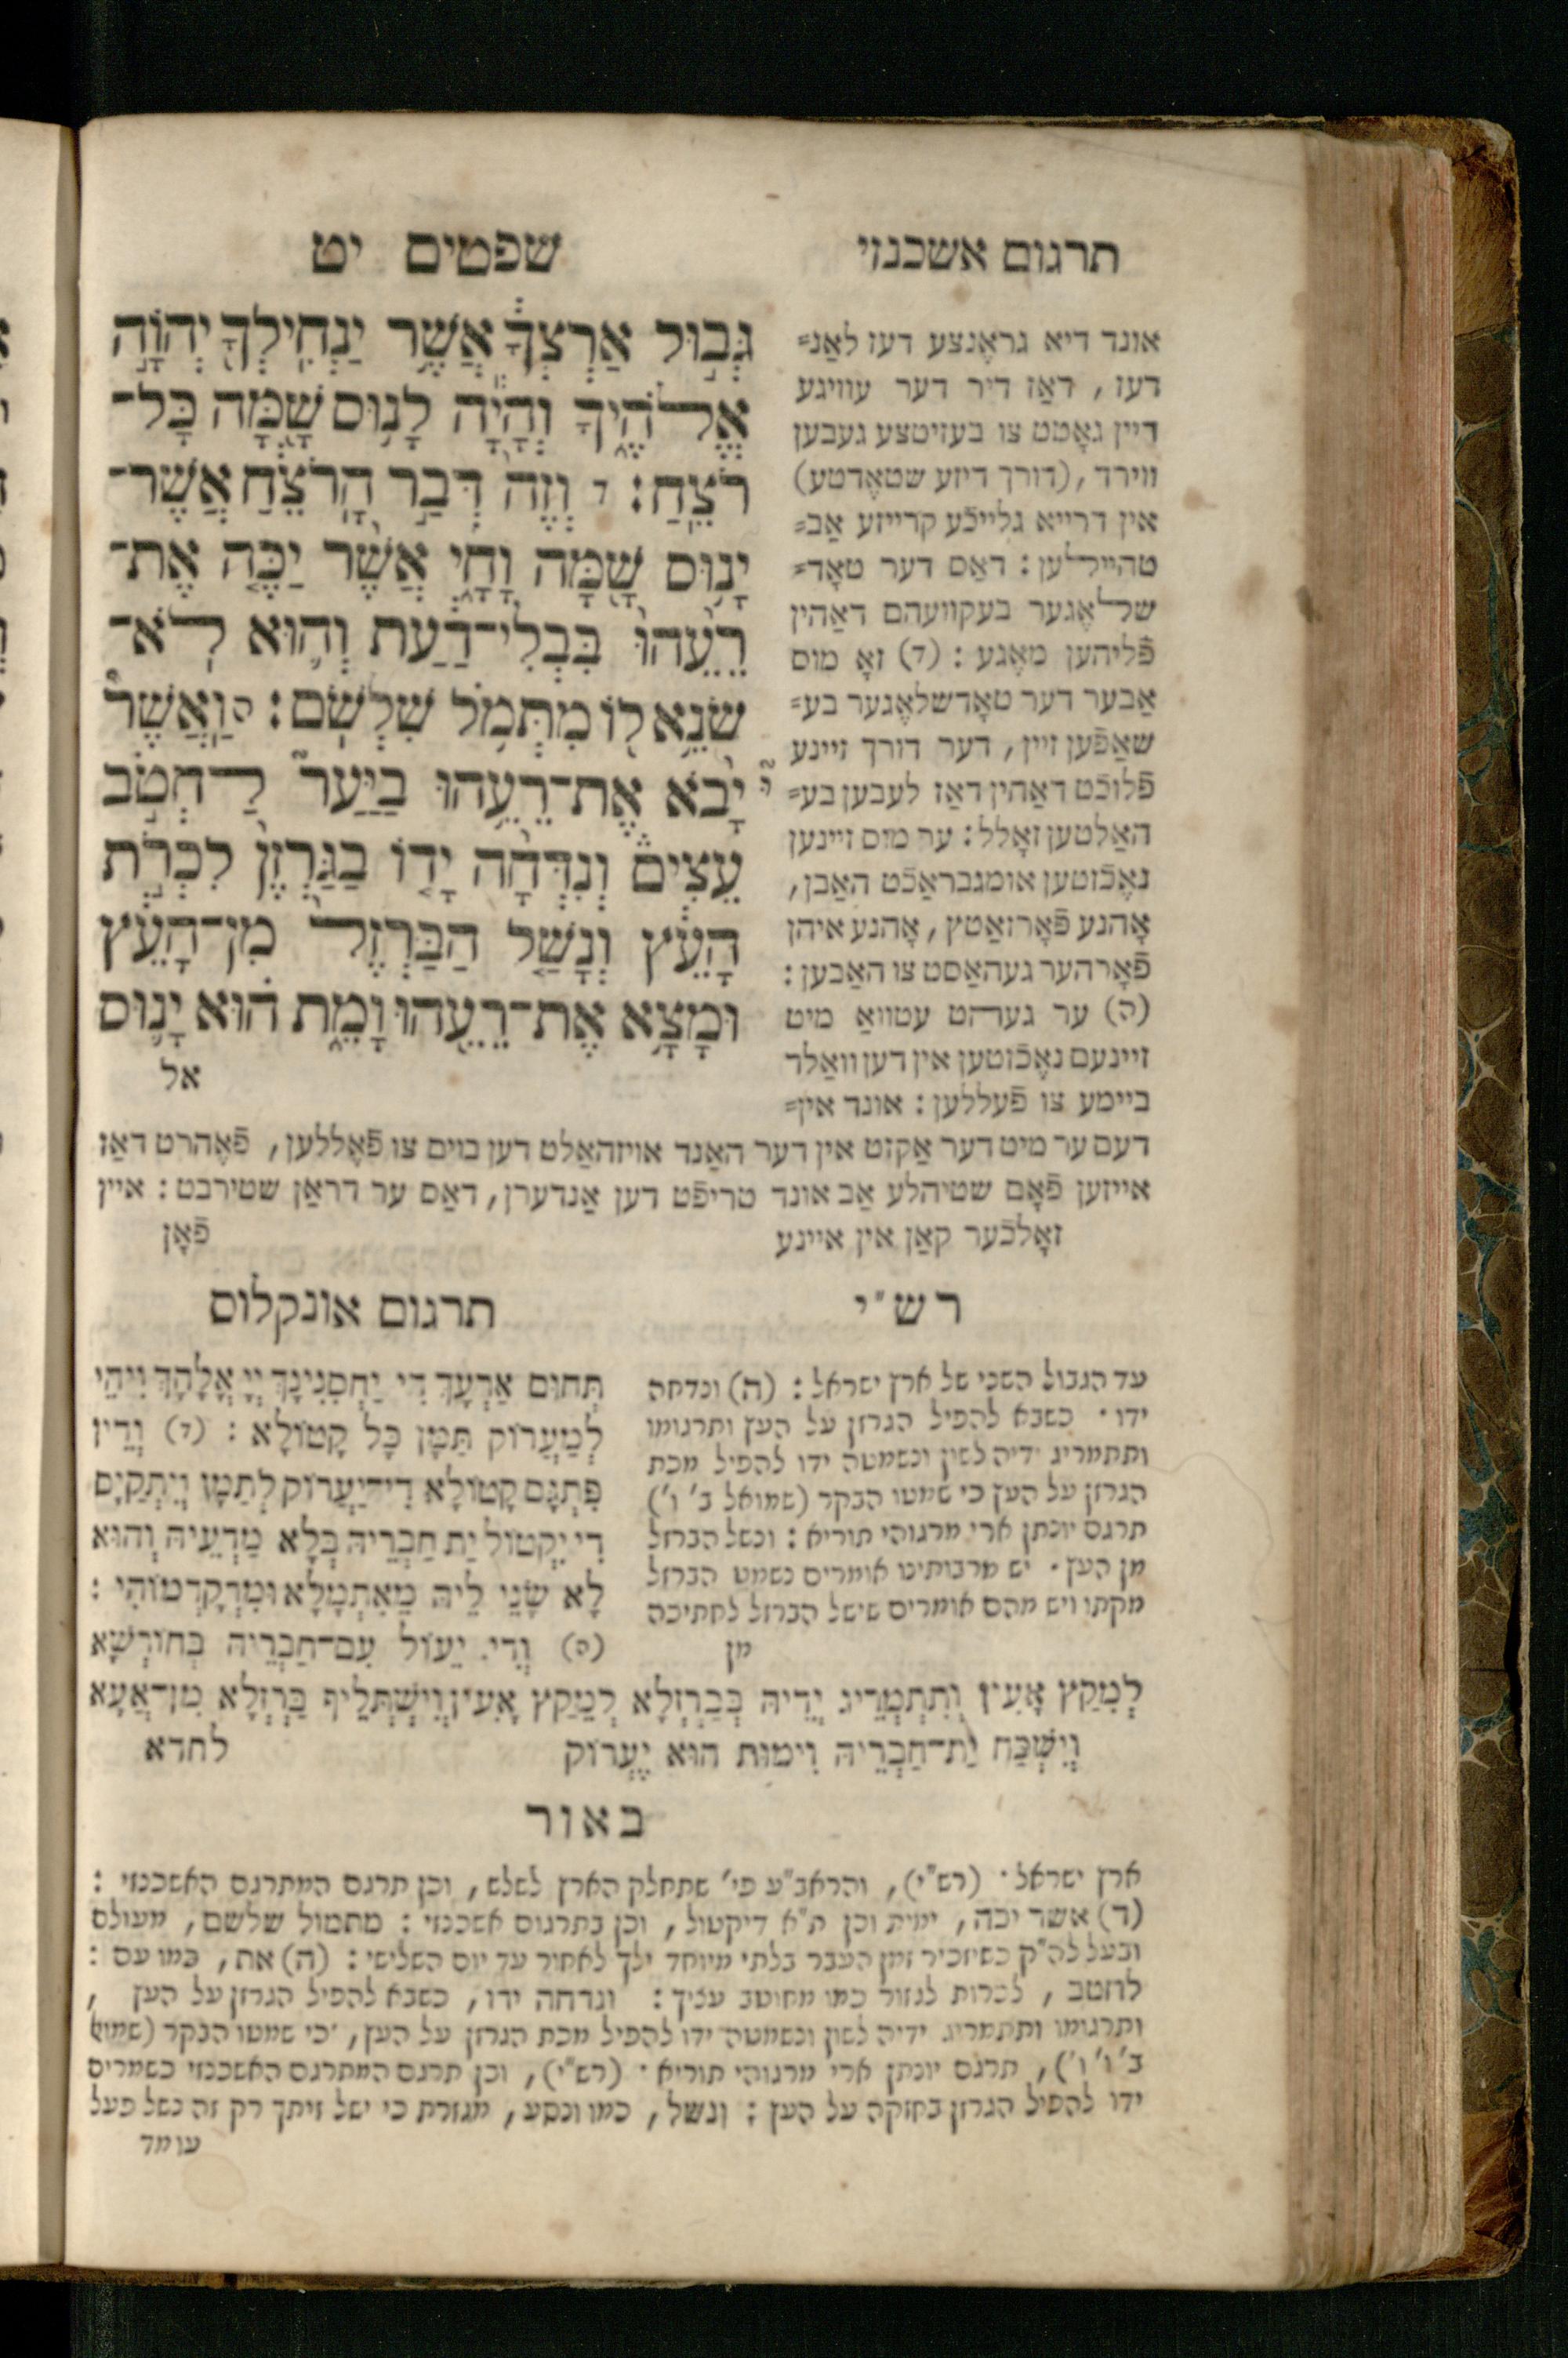 שפטים יט
גְּב֣וּל אַרְצְךָ֔ אֲשֶׁ֥ר יַנְחִֽילְךָ֖ יְהוָֹ֣ה
אֱלֹהֶ֑יךָ וְהָיָ֕ה לָנ֥וּס שָׁ֖מָּה כָּל־
רֹצֵֽחַ׃ ד וְזֶה֙ דְּבַ֣ר הָרֹצֵ֔חַ אֲשֶׁר־
יָנ֥וּס שָׁ֖מָּה וָחָ֑י אֲשֶׁ֨ר יַכֶּ֤ה אֶת־
רֵעֵ֙הוּ֙ בִּבְלִי־דַ֔עַת וְה֛וּא לֹא־
שֹׂנֵ֥א ל֖וֹ מִתְּמֹ֥ל שִׁלְשֹֽׁם׃ ה וַאֲשֶׁר֩
יָבֹ֨א אֶת־רֵעֵ֥הוּ בַיַּעַר֮ לַחְטֹ֣ב
עֵצִים֒ וְנִדְּחָ֨ה יָד֤וֹ בַגַּרְזֶן֙ לִכְרֹ֣ת
הָעֵ֔ץ וְנָשַׁ֤ל הַבַּרְזֶל֙ מִן־הָעֵ֔ץ
וּמָצָ֥א אֶת־רֵעֵ֖הוּ וָמֵ֑ת ה֗וּא יָנ֛וּס
אל
תרגום אשכנזי
אונד דיא גראֶנצע דעז לאַנ=
דעז, דאַז דיר דער עוויגע
דיין גאָטט צו בעזיטצע געבען
ווירד, (דורך דיזע שטאֶדטע)
אין דרייא גלייכֿע קרייזע אַב=
טהיילען: דאַס דער טאָד=
שלאֶגער בעקוועהם דאַהין
פֿליהען מאֶגע: (ד) זאָ מוס
אַבער דער טאָדשלאֶגער בע=
שאַפֿען זיין, דער דורך זיינע
פֿלוכֿט דאַהין דאַז לעבען בע=
האַלטען זאָלל: ער מוס זיינען
נאֶכֿזטען אומגבראַכֿט האַבן,
אָהנע פֿאָרזאַטץ, אָהנע איהן
פֿאָרהער געהאַסט צו האַבען:
(ה) ער געהט עטוואַ מיט
זיינעם נאֶכֿזטען אין דען וואַלד
ביימע צו פֿעללען: אונד אין=
דעם ער מיט דער אַקזט אין דער האַנד אויזהאַלט דען בוים צו פֿאֶללען, פֿאֶהרט דאַז
אייזען פֿאָם שטיהלע אַב אונד טריפֿט דען אַנדערן, דאַס ער דראַן שטירבט: איין
זאָלכֿער קאַן אין איינע
פֿאָן
רש"י
עד הגבול השני של ארץ ישראל: (ה) ונדחה
ידו. כשבא להפיל הגרזן על העץ ותרגומו
ותתמריג ידיה לשון ונשמטה ידו להפיל מכת
הגרזן על העץ כי שמטו הבקר (שמואל ב' ו')
תרגם יונתן ארי מרגוהי תוריא: ונשל הברזל
מן העץ. יש מרבותינו אומרים נשמט הברזל
מקתו ויש מהם אומרים שישל הברזל לחתיכה
מן
תרגום אונקלוס
תְּחוּם אַרְעָךְ דִּי יַחְסְנִינָךְ יְיָ אֱלָהָךְ וִיהֵי
לְמֵעֲרוֹק תַּמָּן כָּל קָטוֹלָא: (ד) וְדֵין
פִּתְגָּם קָטוֹלָא דִּי־יֶעֱרוֹק לְתַמָּן וְיִתְקַיָּם
דִּי יִקְטוֹל יַת חַבְרֵיהּ בְּלָא מַדְּעֵיהּ וְהוּא
לָא שָׂנֵי לֵיהּ מֵאִתְמָלָא וּמִדְקָדְמוֹהִי:
(ה) וְדִי. יֵעוֹל עִם־חַבְרֵיהּ בְּחוּרְשָׁא
לְמִקַּץ אָעִין וְתִתְמְרֵיג יְדֵיהּ בְּבַרְזְלָא לְמִקַּץ אָעִין וְיִשְׁתְּלֵיף בַּרְזְלָא מִן־אָעָא
וְיִשְׁכַּח יַת־חַבְרֵיהּ וִימוּת הוּא יֶעֱרוֹק
לחדא
באור
ארץ ישראל. (רש"י), והראב"ע פי' שתחלק הארץ לשלש, וכן תרגם המתרגם האשכנזי:
(ד) אשר יכה, ימית וכן ת"א דיקטול, וכן בתרגום אשכנזי: מתמול שלשם, מעולם
ובעל לה"ק כשיזכיר זמן העבר בלתי מיוחד ילך לאחור עד יום השלישי: (ה) את, כמו עם:
לחטב, לכרות לגזור כמו מחוטב עציך: ונדחה ידו, כשבא להפיל הגרזן על העץ,
ותרגומו ותתמריג ידיה לשון ונשמטה ידו להפיל מכת הגרזן על העץ, כי שמטו הבקר (שמואל
ב' ו' ו'), תרגם יונתן ארי מרגוהי תוריא. (רש"י), וכן תרגם המתרגם האשכנזי כשמרים
ידו להפיל הגרזן בחזקה על העץ: ונשל, כמו ונסע, מגזרת כי ישל זיתך רק זה נשל פעל
עומד